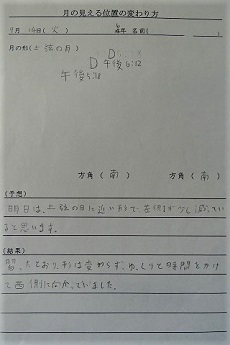 月の見える位置の変わり方
9月 14日(火) 6年 名前( )
月の形(上弦の月)
D
D 午後6:12
午後5:38
方角(南) 方角(南)
(予想)
明日は、上弦の月に近い形で、右側が少し減って
ると思います。
(結果)
とおり、形は変わらず、ゆっくりと時間をかけ
て西側に向かっていました。